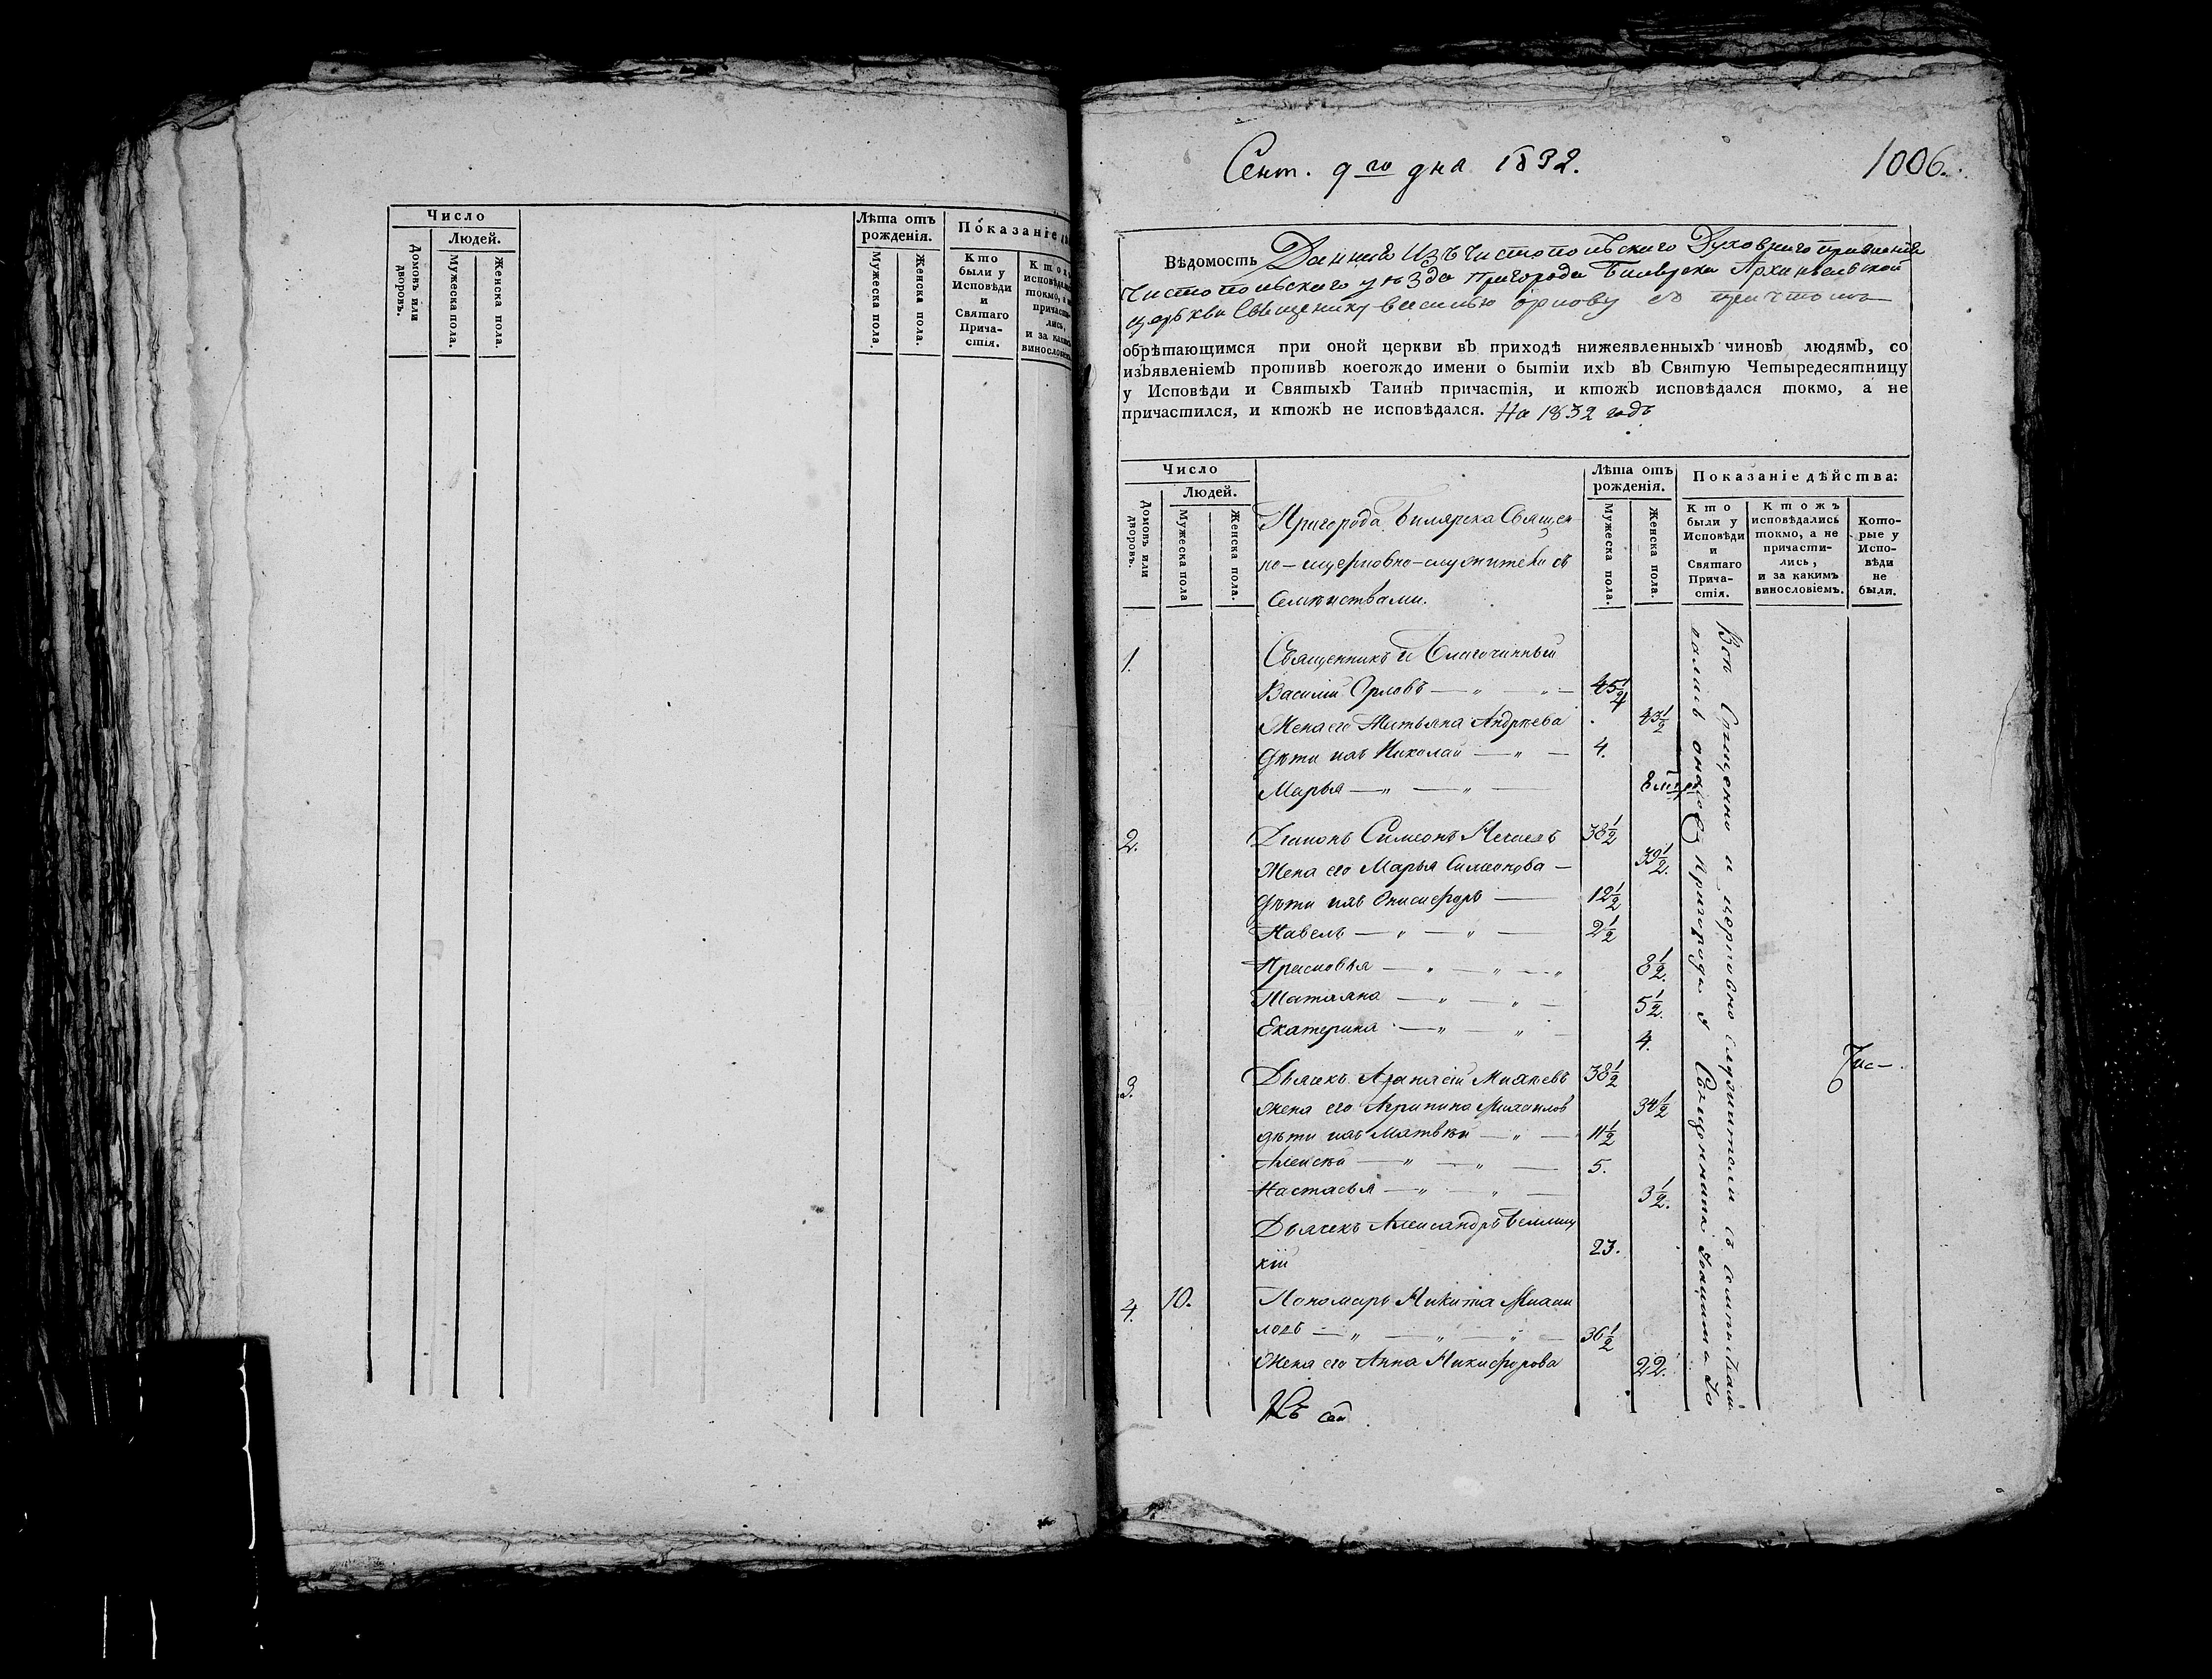 Число
Людей.
Домовъ или дворовъ.
Мужеска пола.
Женска пола.
Лѣта отъ
рожденія.
Мужеска пола.
Женска пола.
Показаніе
Кто
были у
Исповѣди
и
Святаго
Прича-
стія.
Сент. 9го дня 1832.
1006.
Вѣдомость Данная изъ Чистопольскаго Духовнаго правленія
Чистопольскаго уѣзда пригорода Билярска Архангельской
церкви Священнику Василью Орлову съ причтомъ
обрѣтающимся при оной церкви въ приходѣ нижеявленныхъ чиновъ людямъ, со
изъявленіемъ противъ коегождо имени о бытіи ихъ въ Святую Четыредесятницу
у Исповѣди и Святыхъ Таинъ причастія, и ктожъ исповѣдался токмо, а не
причастился, и ктожъ не исповѣдался. На 1832 годъ
Число
Людей.
Домовъ или дворовъ.
Мужеска пола
Женска пола.
Пригорода Билярска Священ
но-церковно-служители съ
Семѣйствами.
Лѣта отъ
рожденія.
Мужеска пола.
Женска пола.
Показаніе дѣйства:
Кто
были у
Исповѣди
и
Святаго
Прича-
стія.
Ктожъ
исповѣдались
токмо, а не
причасти-
лись,
и за какимъ
винословіемъ.
Кото-
рые у
Испо-
вѣди
не
были.
1. Священникъ и Благочинный
Василій Орловъ — „ — „ — 45 1/4
Жена его Татьяна Андреева 43 1/2
дѣти ихъ Николай — „ — 4.
Марья — „ — „ —
2. Діаконъ Симеонъ 38 1/2
Жена его Марья Симеонова — 39 1/2.
дѣти ихъ Онисифоръ — 12 1/2
Павелъ — „ — „ — 2 1/2
Прасковья — „ — „ — „ 8 1/2.
Татьяна — „ — „ — 5 1/2.
Екатерина — „ — „ — 4.
3. Дьячекъ Афанасій 38 1/2
жена его Агрипина Михайлов 34 1/2
дѣти ихъ Матвѣй — „ — 11 1/2
Алексѣй — „ — „ — 5.
Настасья — „ — „ — 3 1/2.
Дьячекъ Александръ
кій 23.
4. 10. Пономарь Никита Михай
ловъ — „ — „ — „ — 36 1/2
Жена его Анна Никифорова 22.
Всѣ Священно и церковно служители съ Семѣйствами
пригорода Священника